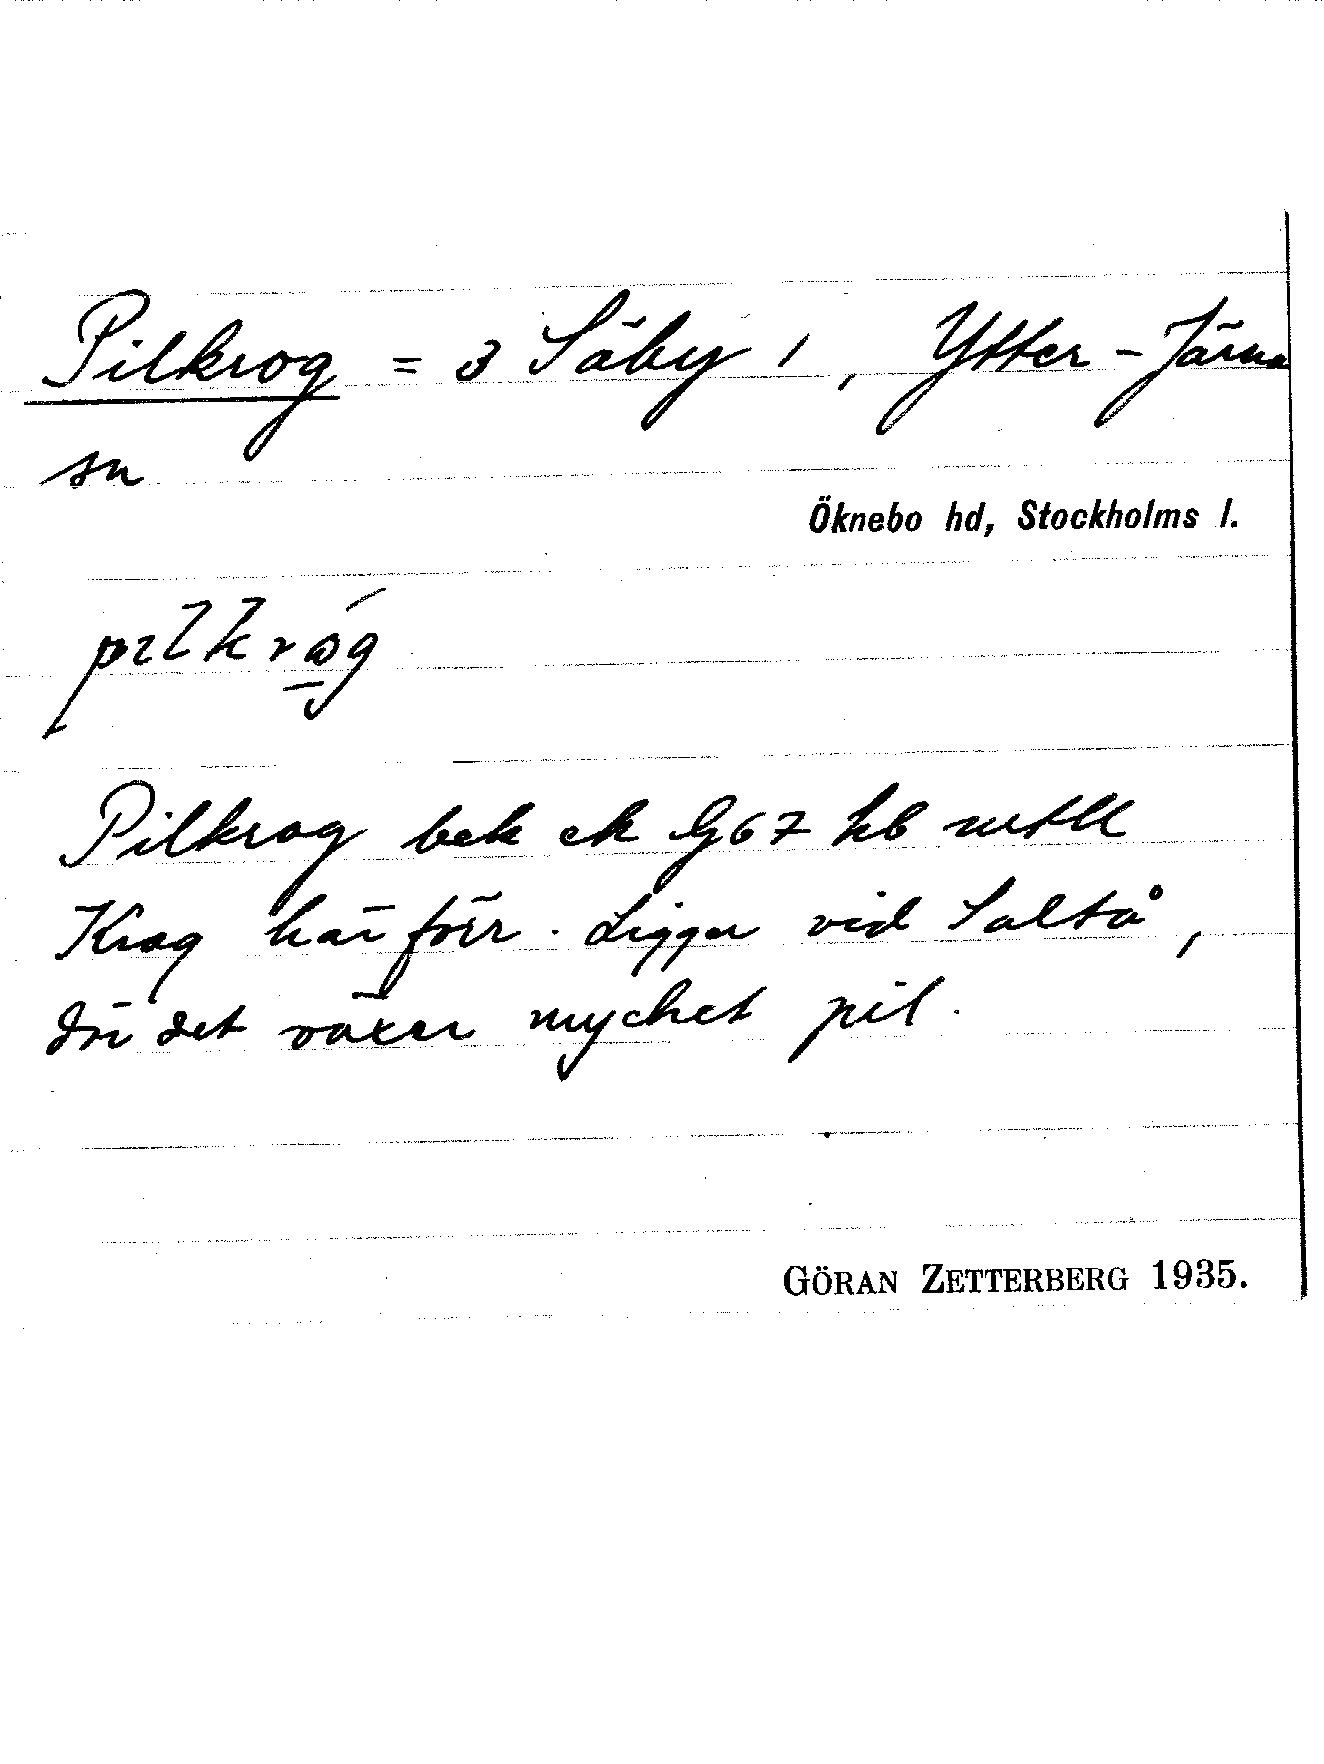 Pilkrog = 3 Säby 1, Ytter-Järna
sn
Öknebo hd, Stockholms l.
pilkrǿg
Pilkrog bek ek G67 hb
Krog här förr. Ligger vid Saltå,
där det växer mycket pil.
GÖRAN ZETTERBERG 1935.